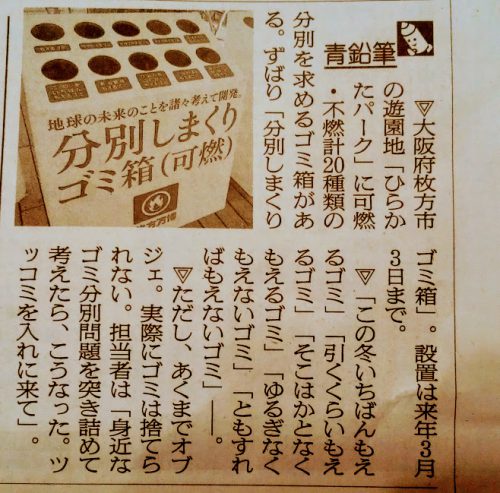 青鉛筆
▽大阪府枚方市
の遊園地「ひらか
たパーク」に可燃
・不燃計20種類の
分別を求めるゴミ箱があ
る。ずばり「分別しまくり
地球の未来のことを諸々考えて開発。
分別しまくり
ゴミ箱(可燃)
枚方万博
ゴミ箱」。設置は来年3月
3日まで。
▽「この冬いちばんもえ
るゴミ」「引くくらいもえ
るゴミ」「そこはかとなく
もえるゴミ」「ゆるぎなく
もえないゴミ」「ともすれ
ばもえないゴミ」――。
▽ただし、あくまでオブ
ジェ。実際にゴミは捨てら
れない。担当者は「身近な
ゴミ分別問題を突き詰めて
考えたら、こうなった。ツ
ッコミを入れに来て」。